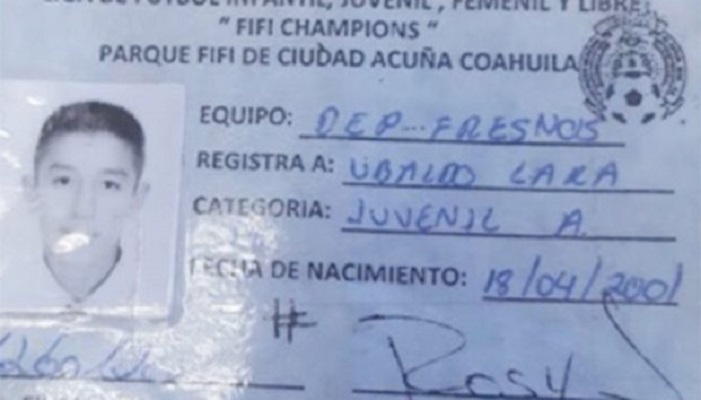 LIGA DE FUTBOL INFANTIL, JUVENIL , FEMENIL Y LIBRE
" FIFI CHAMPIONS "
PARQUE FIFI DE CIUDAD ACUÑA COAHUILA
EQUIPO: DEP... FRESNOS
REGISTRA A: UBALDO LARA
CATEGORIA: JUVENIL A.
FECHA DE NACIMIENTO: 18/04/2001
#
Rosy